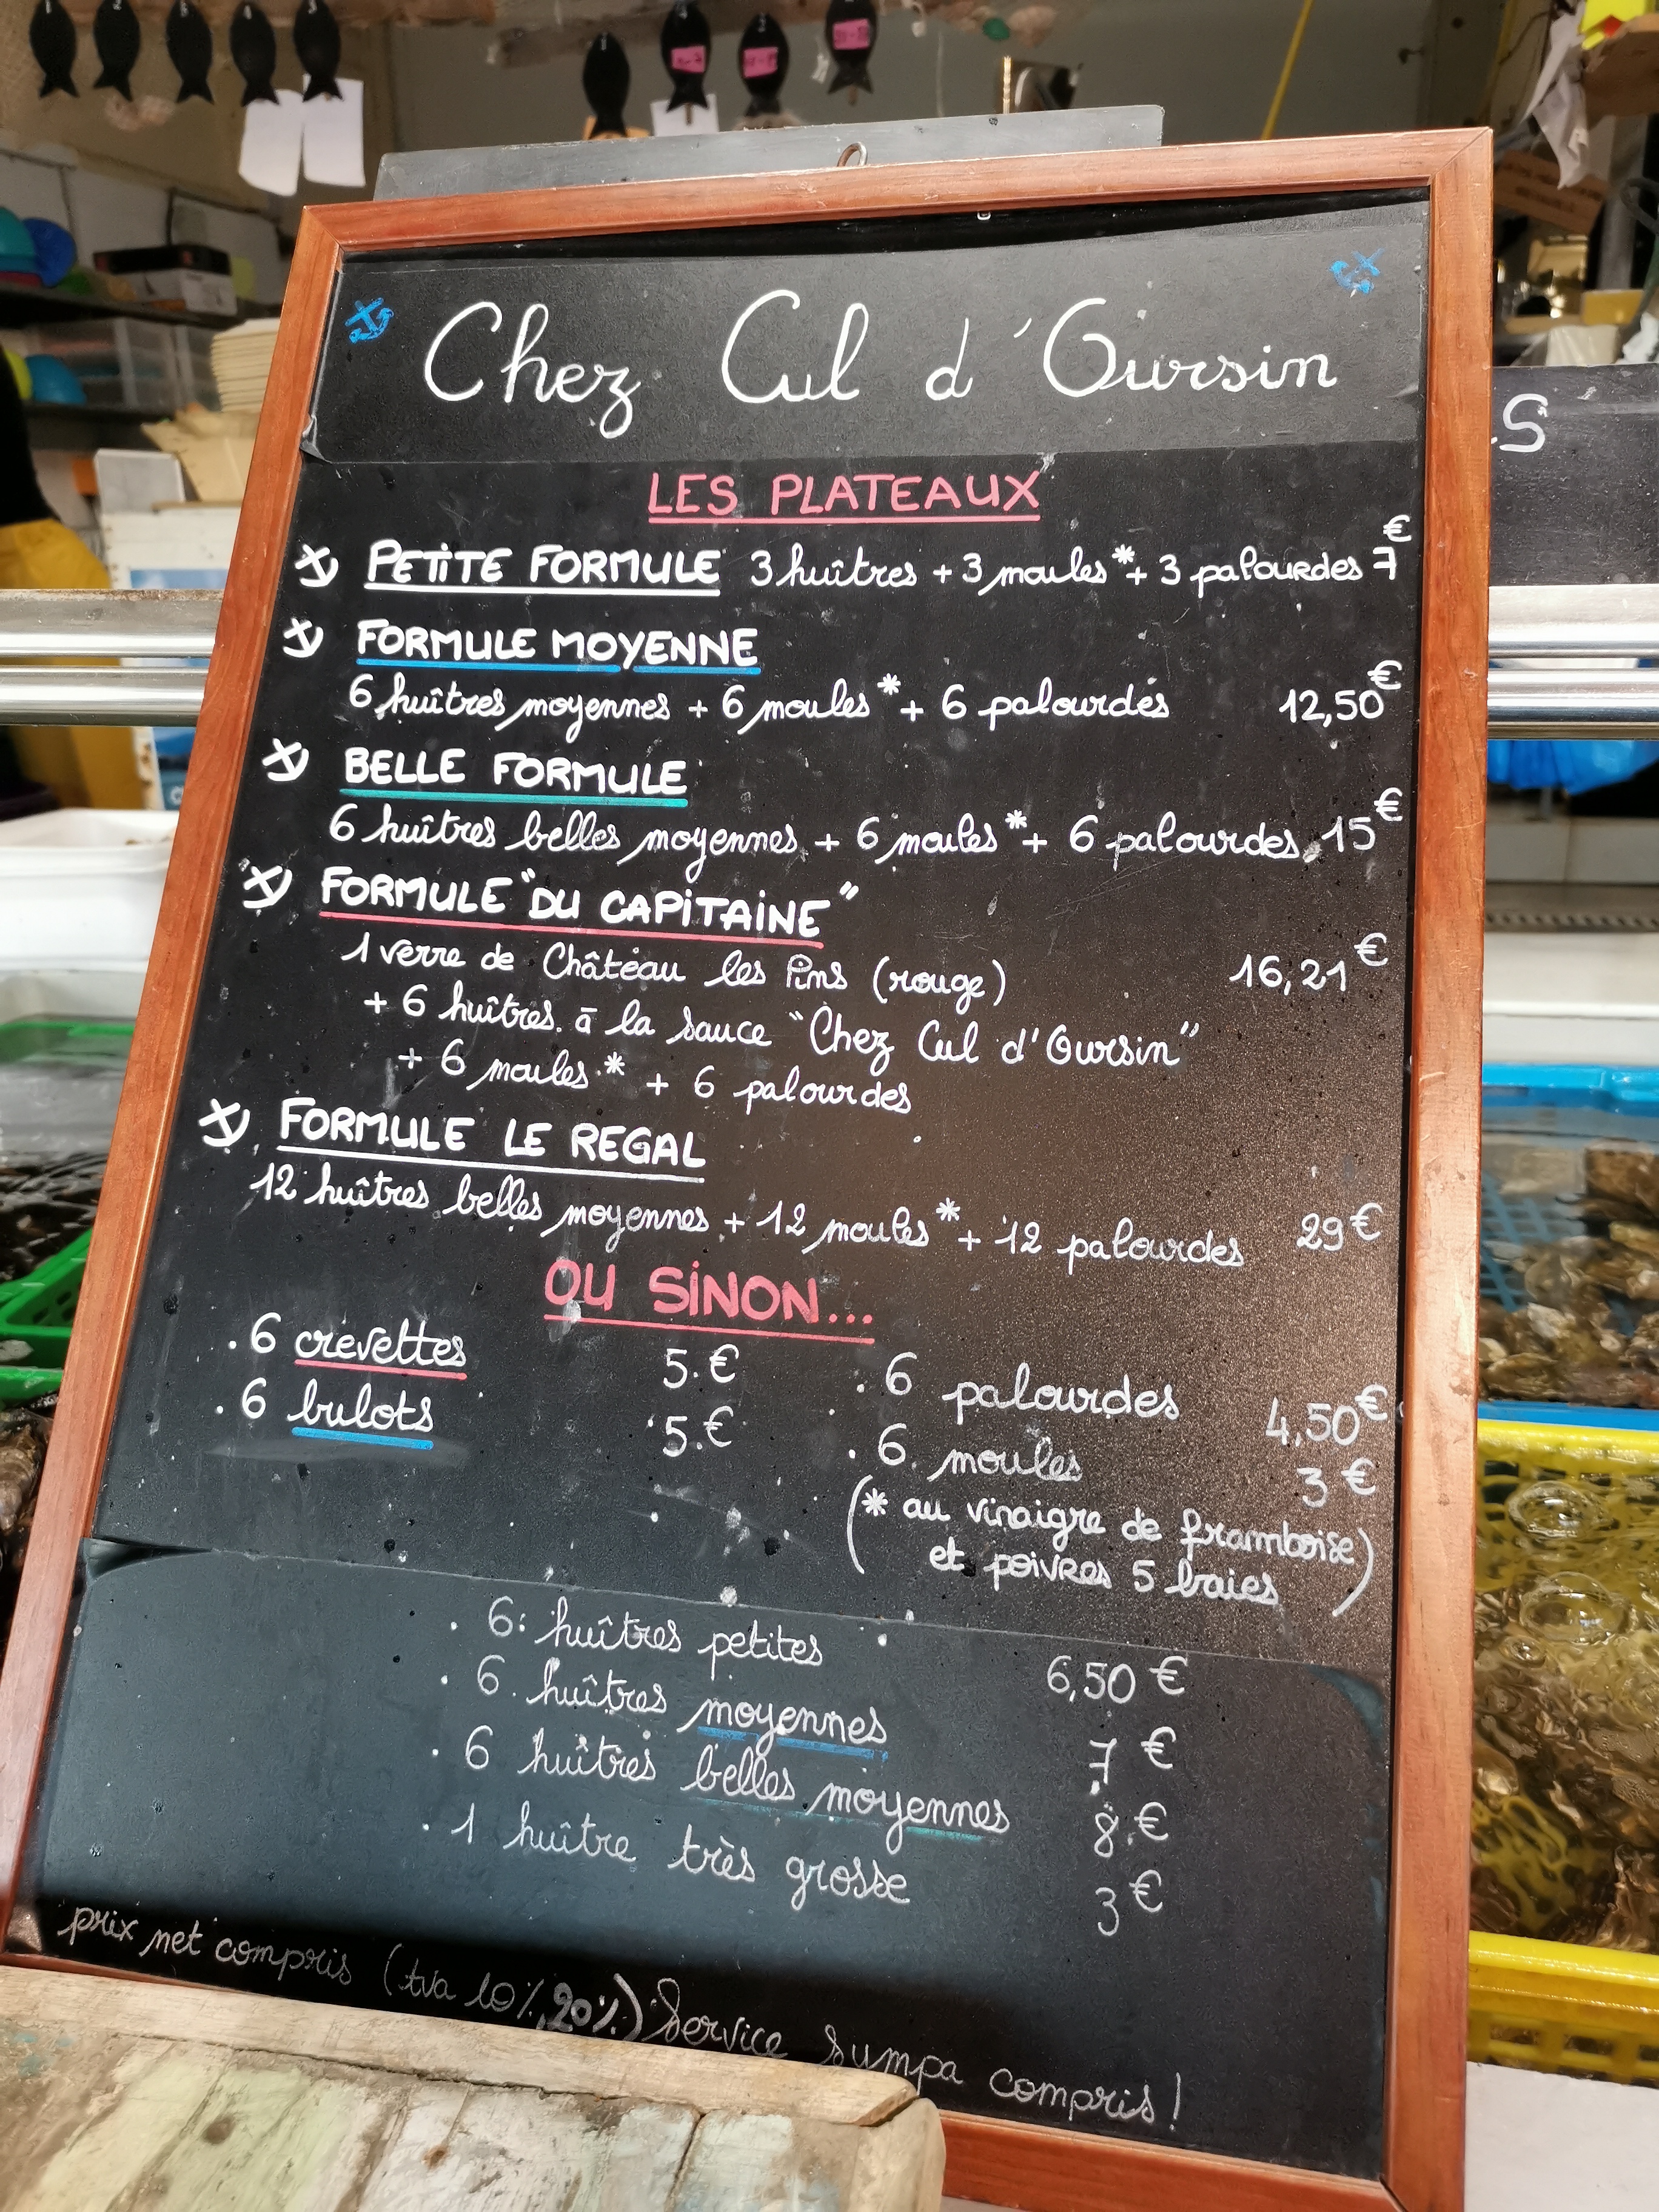 Chez Cul d'Oursin
LES PLATEAUX
PETITE FORMULE 3 huîtres + 3 moules* + 3 palourdes 7€
FORMULE MOYENNE
6 huîtres moyennes + 6 moules* + 6 palourdes 12,50€
BELLE FORMULE
6 huîtres belles moyennes + 6 moules* + 6 palourdes 15€
FORMULE "DU CAPITAINE"
1 verre de Château les Pins (rouge) 16,21€
+ 6 huîtres à la sauce "Chez Cul d'Oursin"
+ 6 moules* + 6 palourdes
FORMULE LE REGAL
12 huîtres belles moyennes + 12 moules* + 12 palourdes 29€
OU SINON...
. 6 crevettes 5.€
. 6 bulots 5.€
. 6 palourdes 4,50€
. 6 moules 3€
(* au vinaigre de framboise
et poivres 5 baies)
. 6 huîtres petites 6,50€
. 6 huîtres moyennes 7€
. 6 huîtres belles moyennes 8.€
. 1 huître très grosse 3€
prix net compris (tva 10%, 20%) Service Sumpa compris!
S